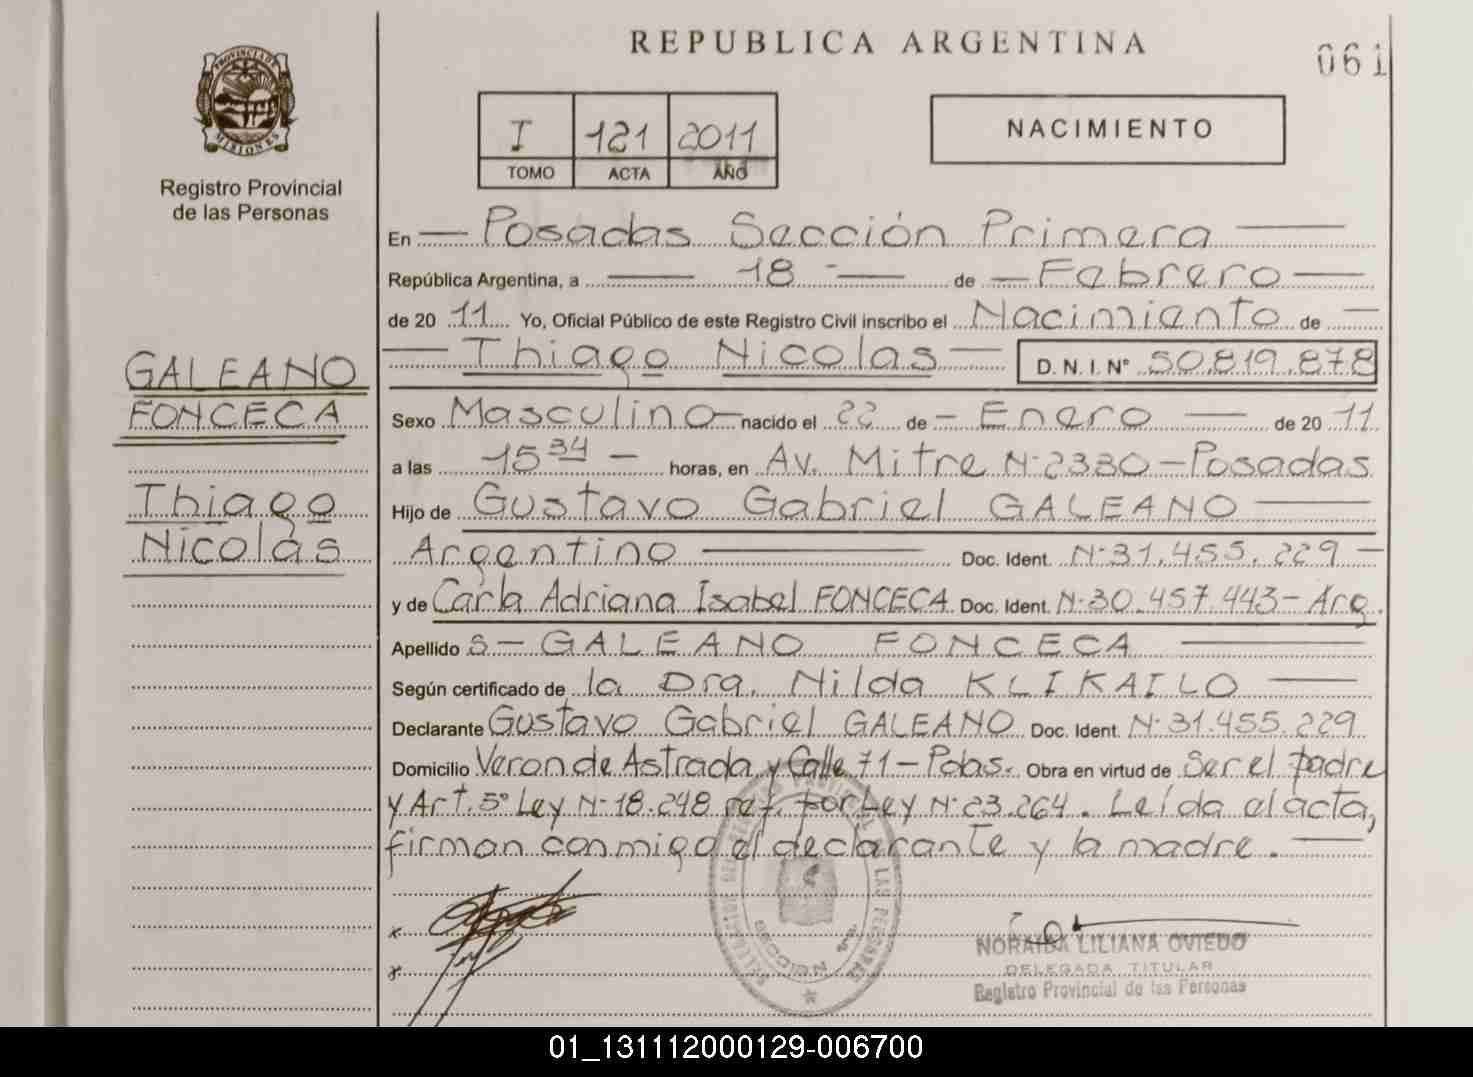 REPUBLICA ARGENTINA
061
PROVINCIA DE
MISIONES
Registro Provincial
de las Personas
I 121 2011
TOMO ACTA AÑO
NACIMIENTO
En — Posadas Sección Primera —
República Argentina, a — 18 — de — Febrero —
de 20 11 Yo, Oficial Público de este Registro Civil inscribo el Nacimiento de —
— Thiago Nicolas — D. N. I. N° 50.819.878
GALEANO
FONCECA
Thiago
Nicolás
Sexo Masculino — nacido el 22 de — Enero — de 20 11
a las 15 34 — horas, en Av. Mitre N° 2330 — Posadas
Hijo de Gustavo Gabriel GALEANO —
Argentino — Doc. Ident. N° 31.455.229 —
y de Carla Adriana Isabel FONCECA Doc. Ident. N° 30.457.443 — Arg.
Apellido S — GALEANO FONCECA —
Según certificado de la Dra. Nilda KLIKAILO —
Declarante Gustavo Gabriel GALEANO Doc. Ident. N° 31.455.229
Domicilio Veron de Astrada y Calle 71 — Pdas. Obra en virtud de Ser el padre
y Art. 5° Ley N° 18.248 ref. por Ley N° 23.264. Leída el acta,
firman conmigo el declarante y la madre. —
NORAIDA LILIANA OVIEDO
DELEGADA TITULAR
Registro Provincial de las Personas
01_131112000129-006700